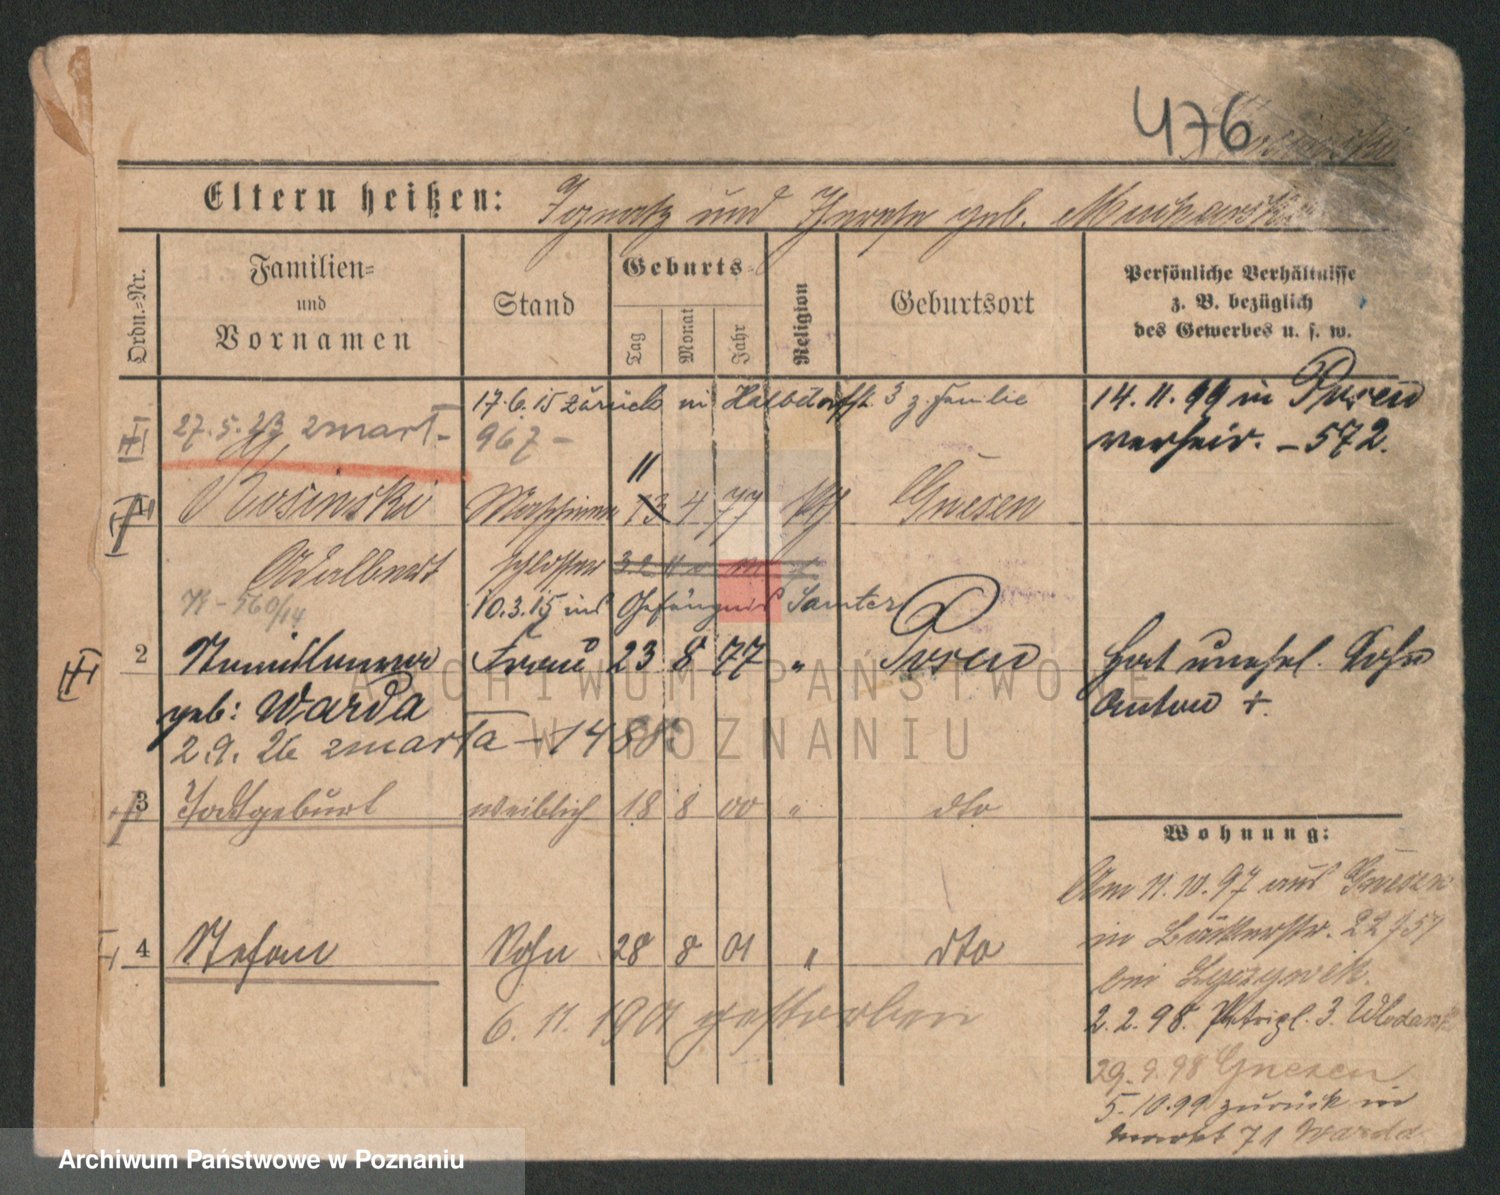 476
Eltern heißen: Ignatz und Therese geb. Mucharska
Ordn.=Nr.
Familien=
und
Vornamen
Stand
Geburts=
Tag
Monat
Jahr
Religion
Geburtsort
Persönliche Verhältnisse
z. B. bezüglich
des Gewerbes u. s. w.
17.6.15 zurück in Halbdorfstr. 3 z. Familie
14.11.99 in Posen
27.5.23 zmarł -
967 -
verheir. - 572.
11
1 Rosinski Maschinen 13 4 77 Gnesen
Adalbert schlosser
K - 560/14 10.3.15 ins Gefängnis Samter
2 Stanislawa Frau 23 8 77 " Posen
hat unehel. Sohn
geb: Warda
Anton +.
2.9.26 zmarła - 1488
3 Todtgeburt weiblich 18 8 00 " dto
Wohnung:
Am 11.10.97 aus Gnesen
in Bäckerstr. 22
4 Stefan Sohn 28 8 01 " dto
bei
6.11.1901 gestorben
2.2.98. Petripl. 3.
29.9.98 Gnesen
5.10.99 zurück in
Markt 71 Warda
ARCHIWUM PAŃSTWOWE
W POZNANIU
Archiwum Państwowe w Poznaniu